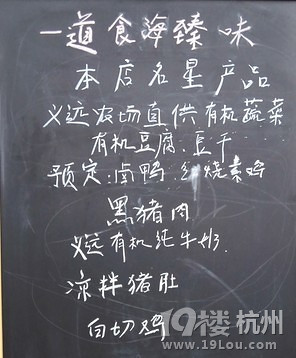 一道食海臻味
本店名星产品
义远农场直供有机蔬菜
有机豆腐.豆干
预定:卤鸭.红烧素鸡
黑猪肉
义远有机纯牛奶.
凉拌猪肚
白切鸡
19楼 杭州
www.19Lou.com